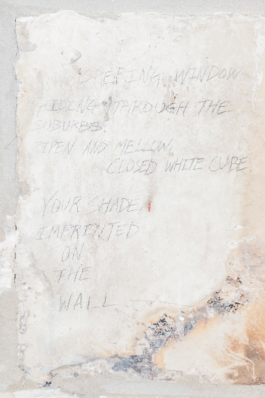 WINDOW
THROUGH THE
SUBURBS.
OPEN AND MELLOW.
CLOSED WHITE CUBE.
YOUR SHADE,
IMPRINTED
ON
THE
WALL